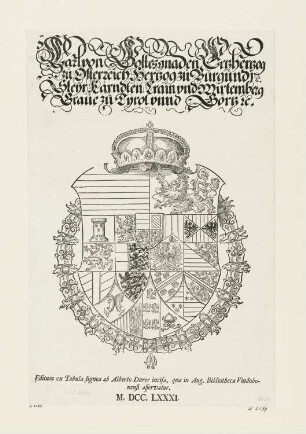 Carl von Gottes gnaden Ertzhertzog
zu Osterreich Hertzog zu Burgundj
Steyr Kärndten Crain vnd Wirtemberg
Graue zu Tyrol vnnd Görtz ꝛc.
Editum ex Tabula lignea ab Alberto Durer incisa, quæ in Aug. Bibliotheca Vindobo-
nensi aſservatur.
M. DCC. LXXXI.